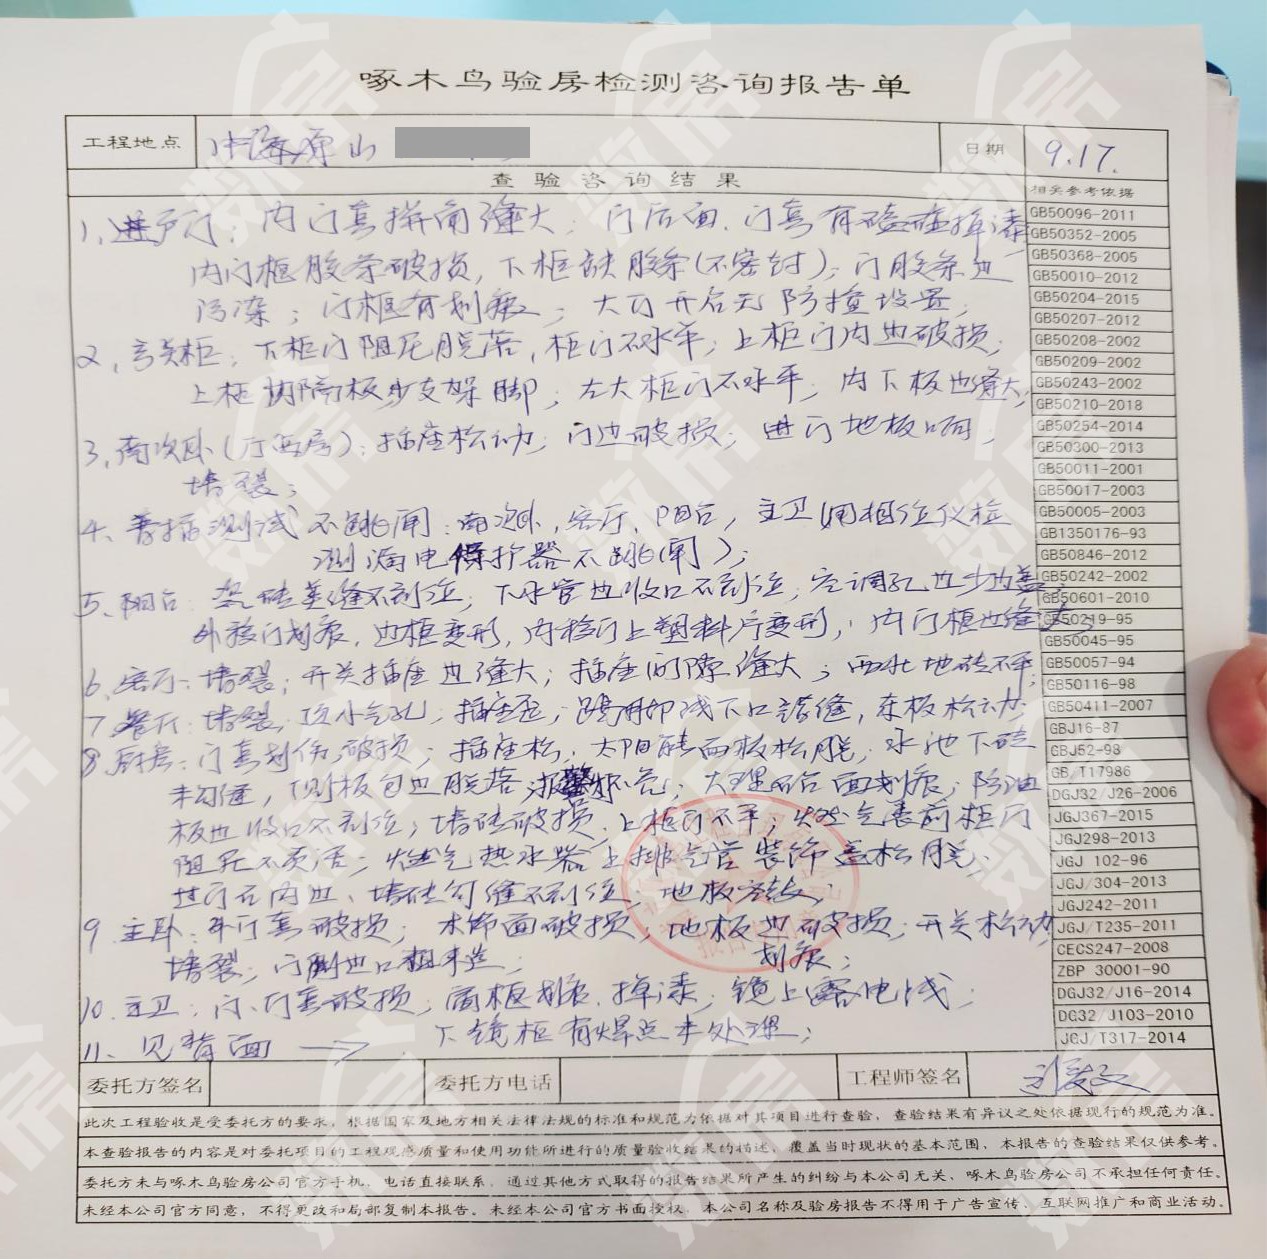 啄木鸟验房检测咨询报告单
工程地点 中海原山 日期 9.17.
查验咨询结果 相关参考依据
1、进户门：内门套拼角缝大，门后面、门套有磕碰掉漆
内门框胶条破损，下框缺胶条(不密封)；门胶条边
污染；门框有划痕；大门开启无防撞设置；
2、玄关柜：下柜门阻尼脱落，柜门不水平；上柜门内边破损；
上柜内隔板少支架脚；左大柜门不水平；内下板边缝大；
3、南次卧(厅西房)：插座松动；门边破损；进门地板响；
墙裂；
4、普插测试不跳闸：南次卧，客厅、阳台，主卫(用相位仪检
测漏电保护器不跳闸)；
5、阳台：瓷砖美缝不到位；下水管边收口不到位；空调孔边少边盖
外移门划痕，边框变形，内移门上塑料片变形；内门框边缝大
6、客厅：墙裂；开关插座边缝大；插座间隙缝大；西北地砖不平；
7、餐厅：墙裂，顶小气孔，插座歪；踢脚线下口离缝，东板松动
8、厨房：门套划伤，破损；插座松，面板松脱；水池下砖
未勾缝，侧板包边脱落；大理石台面划痕；防油
板边收口不到位；墙砖破损，上柜门不平；燃气表前柜门
阻尼不灵活；燃气热水器上排气管装饰盖松脱；
过门石内边、墙砖勾缝不到位；地板空鼓；
9、主卧：门套破损；木饰面破损；地板边破损；开关松动
墙裂； 划痕；
10、主卫：门、门套破损；窗框划痕、掉漆；镜上露电线；
下镜柜有焊点未处理；
11、见背面
GB50096-2011
GB50352-2005
GB50368-2005
GB50010-2012
GB50204-2015
GB50207-2012
GB50208-2002
GB50209-2002
GB50243-2002
GB50210-2018
GB50254-2014
GB50300-2013
GB50011-2001
GB50017-2003
GB50005-2003
GB1350176-93
GB50846-2012
GB50242-2002
GB50601-2010
GB50219-95
GB50045-95
GB50057-94
GB50116-98
GB50411-2007
GBJ16-87
GBJ52-98
GB/T17986
DGJ32/J26-2006
JGJ367-2015
JGJ298-2013
JGJ 102-96
JGJ/304-2013
JGJ242-2011
JGJ/T235-2011
CECS247-2008
ZBP 30001-90
DGJ32/J16-2014
DG32/J103-2010
JGJ/T317-2014
委托方签名 委托方电话 工程师签名
此次工程验收是受委托方的要求，根据国家及地方相关法律法规的标准和规范为依据对其项目进行查验，查验结果有异议之处依据现行的规范为准。
本查验报告的内容是对委托项目的工程观感质量和使用功能所进行的质量验收结果的描述，覆盖当时现状的基本范围，本报告的查验结果仅供参考。
委托方未与啄木鸟验房公司官方手机、电话直接联系，通过其他方式取得的报告结果所产生的纠纷与本公司无关，啄木鸟验房公司不承担任何责任。
未经本公司官方同意，不得更改和局部复制本报告。未经本公司官方书面授权，本公司名称及验房报告不得用于广告宣传、互联网推广和商业活动。